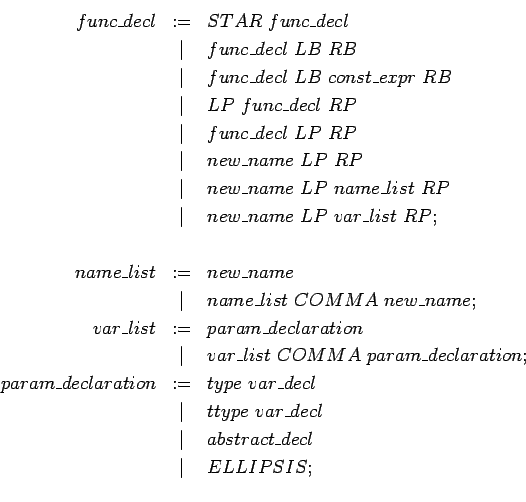 func_decl := STAR func_decl
| func_decl LB RB
| func_decl LB const_expr RB
| LP func_decl RP
| func_decl LP RP
| new_name LP RP
| new_name LP name_list RP
| new_name LP var_list RP;
name_list := new_name
| name_list COMMA new_name;
var_list := param_declaration
| var_list COMMA param_declaration;
param_declaration := type var_decl
| ttype var_decl
| abstract_decl
| ELLIPSIS;